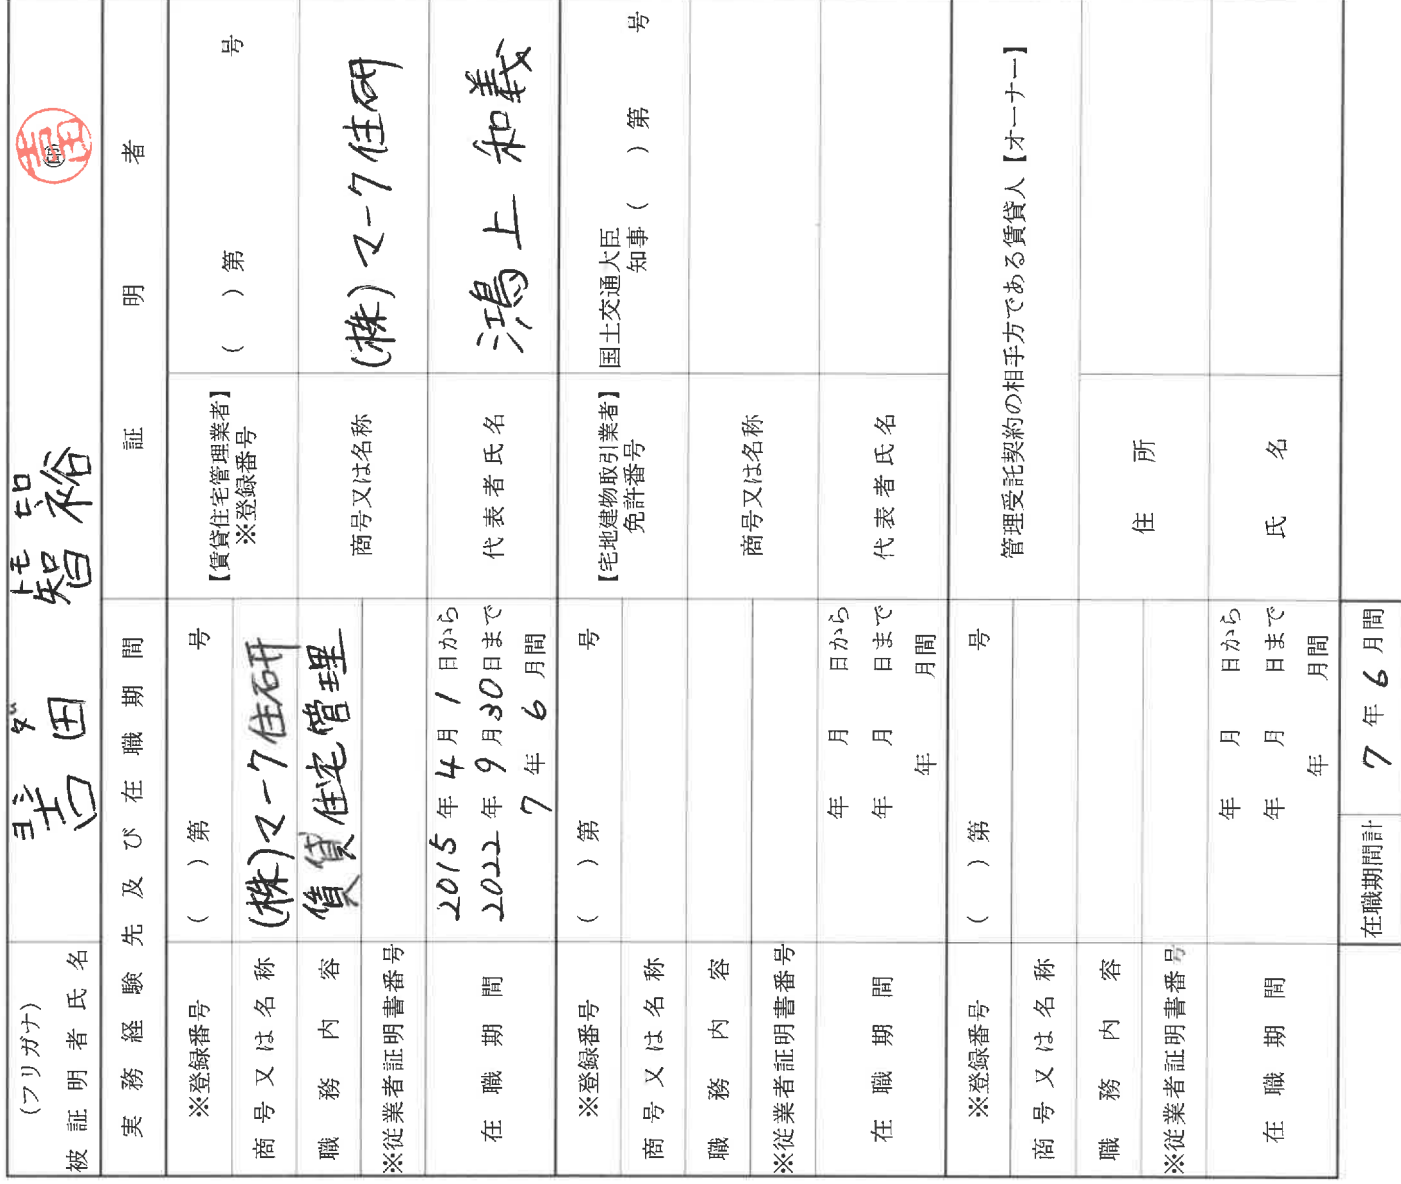 (フリガナ) ヨシ ダ トモ ヒロ
被証明者氏名 吉田 智裕 ㊞
実務経験先及び在職期間 証明者
※登録番号 ( )第 号 【賃貸住宅管理業者】※登録番号 ( )第 号
商号又は名称 (株)マーク住研 商号又は名称 (株)マーク住研
職務内容 賃貸住宅管理
※従業者証明書番号
在職期間 2015年4月1日から 代表者氏名 鴻上和義
2022年9月30日まで
7年6月間
※登録番号 ( )第 号 【宅地建物取引業者】免許番号 国土交通大臣
知事 ( )第 号
商号又は名称 商号又は名称
職務内容
※従業者証明書番号
在職期間 年 月 日から 代表者氏名
年 月 日まで
年 月間
※登録番号 ( )第 号 管理受託契約の相手方である賃貸人【オーナー】
商号又は名称
職務内容 住所
※従業者証明書番号
在職期間 年 月 日から 氏名
年 月 日まで
年 月間
在職期間計 7年6月間